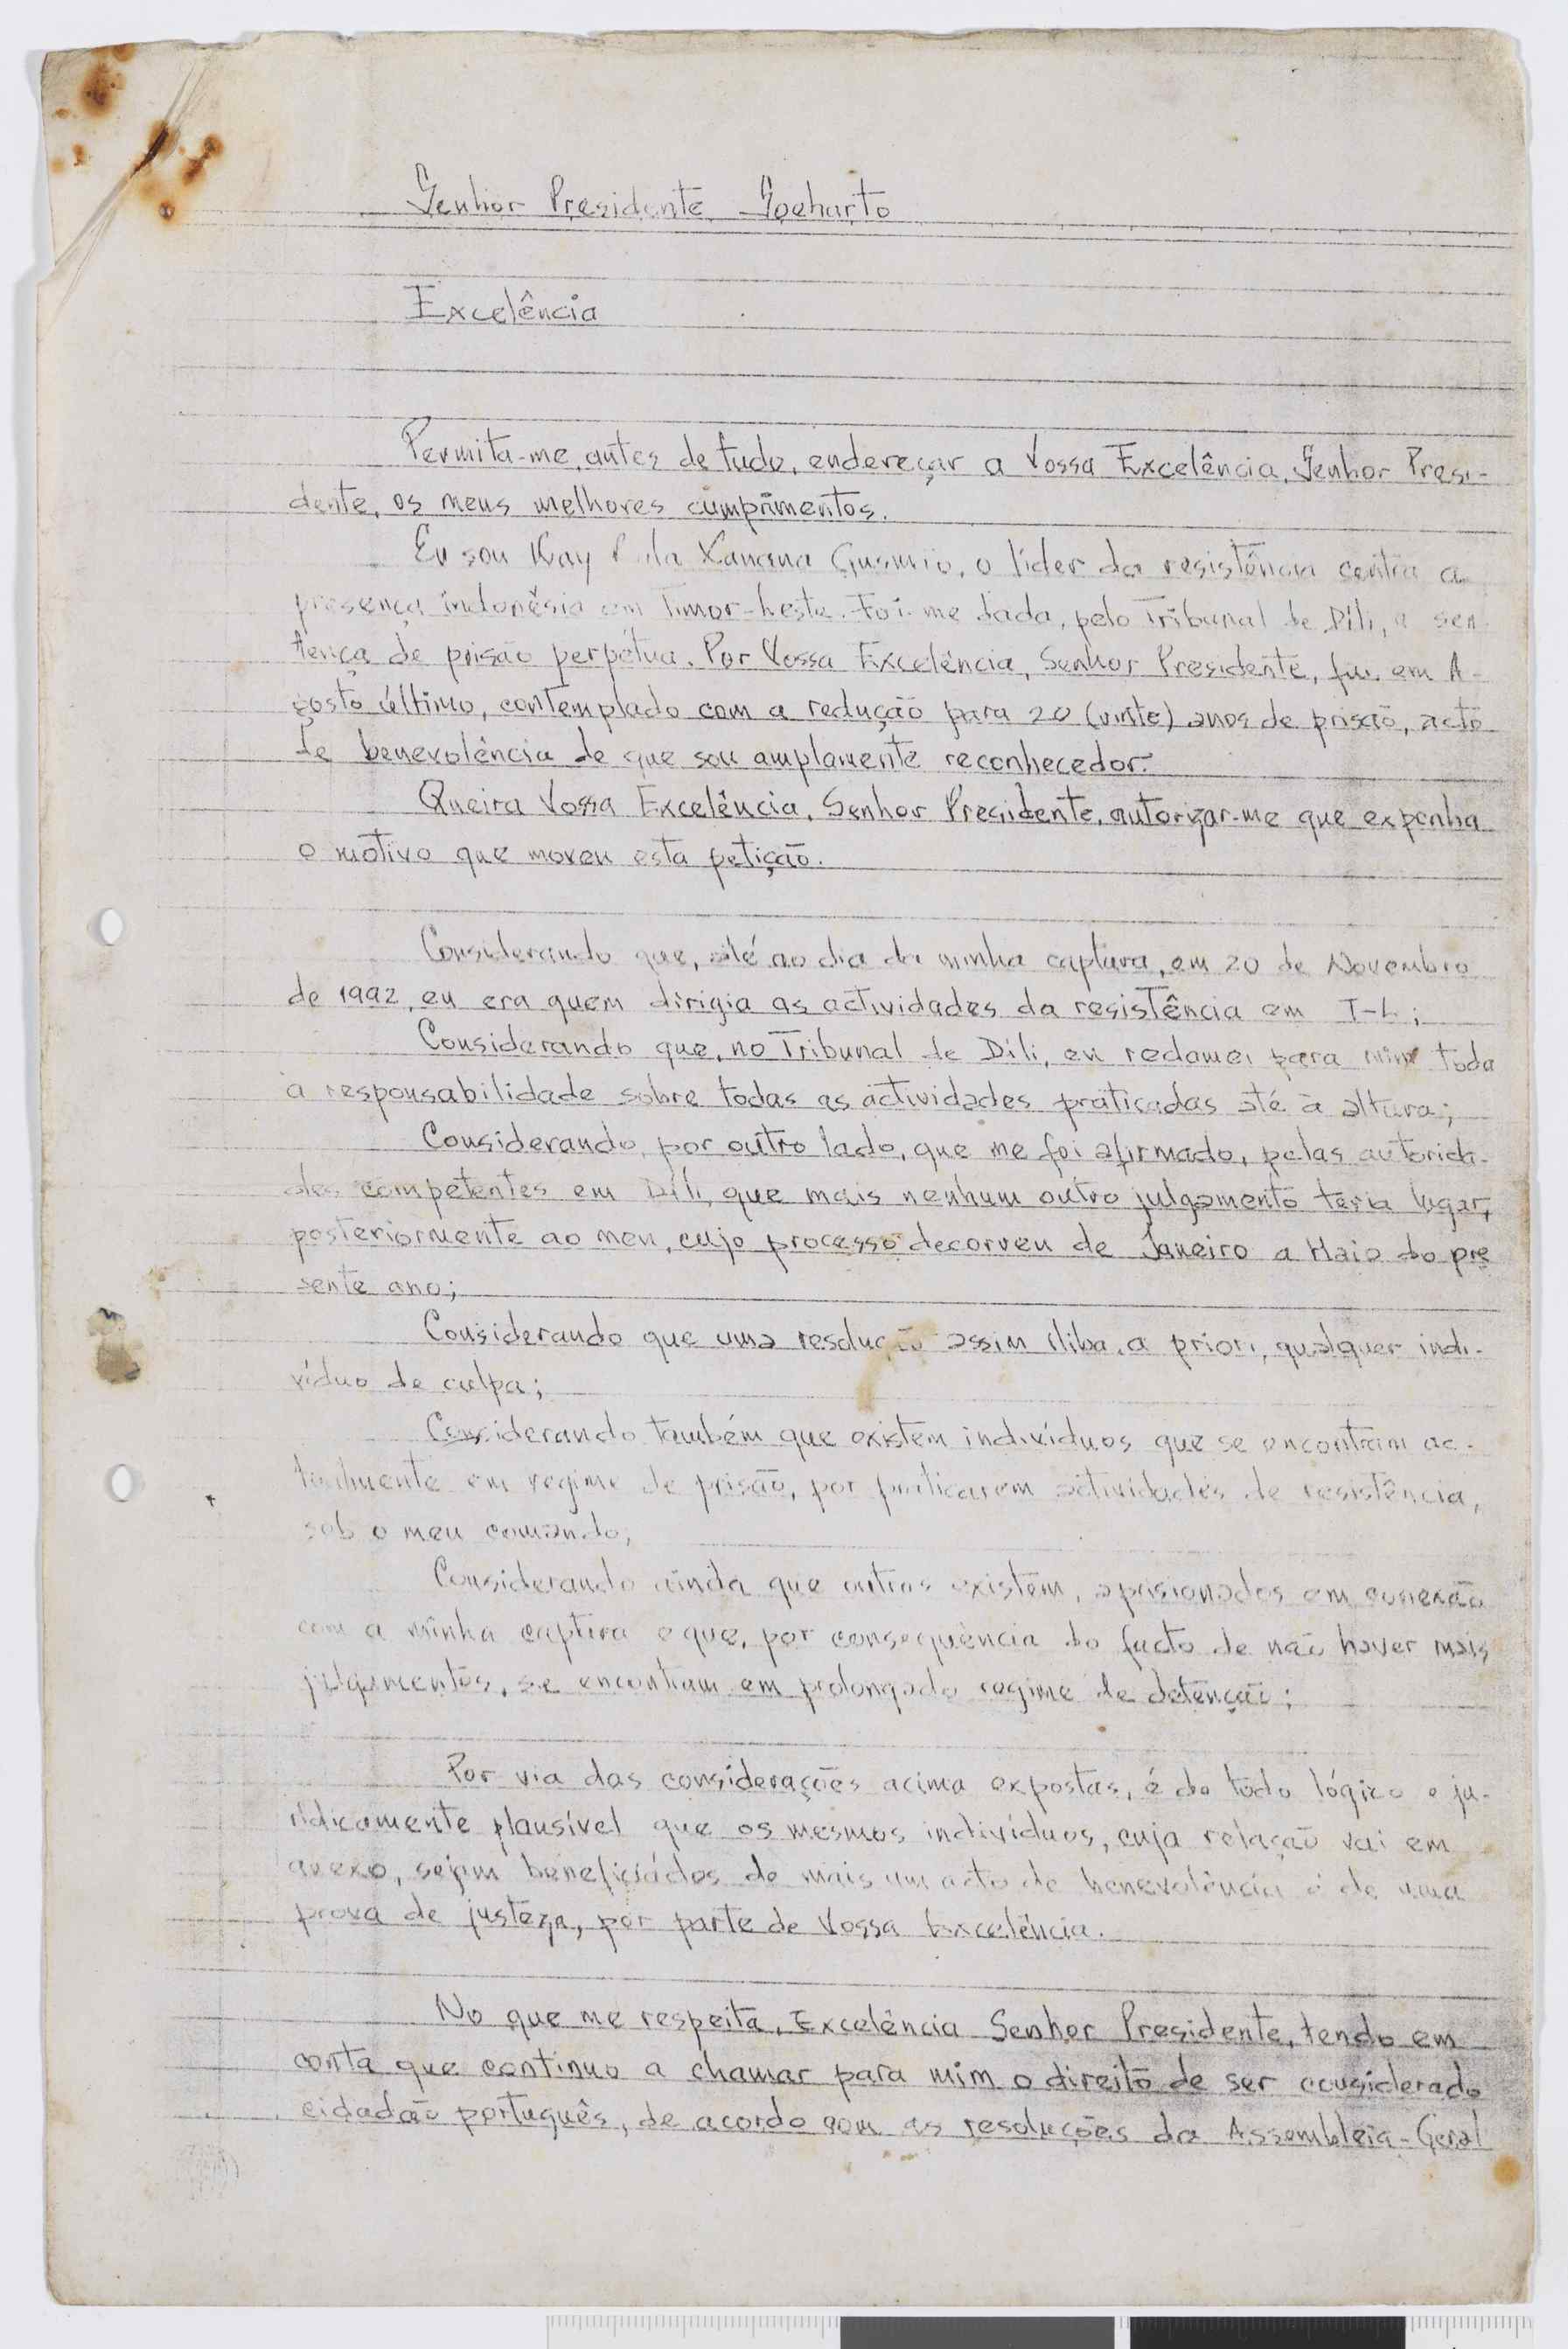 Senhor Presidente Soeharto
Excelência
Permita-me, antes de tudo, endereçar a Vossa Excelência, Senhor Presi-
dente, os meus melhores cumprimentos.
Eu sou Kay Rala Xanana Gusmão, o líder da resistência contra a
presença indonésia em Timor-Leste. Foi-me dada, pelo Tribunal de Díli, a sen-
tença de prisão perpétua. Por Vossa Excelência, Senhor Presidente, fui, em A-
gosto último, contemplado com a redução para 20 (vinte) anos de prisão, acto
de benevolência de que sou amplamente reconhecedor.
Queira Vossa Excelência, Senhor Presidente, autorizar-me que exponha
o motivo que moveu esta petição.
Considerando que, até ao dia da minha captura, em 20 de Novembro
de 1992, eu era quem dirigia as actividades da resistência em T-L;
Considerando que, no Tribunal de Díli, eu reclamei para mim toda
a responsabilidade sobre todas as actividades praticadas até à altura;
Considerando, por outro lado, que me foi afirmado, pelas autorida-
des competentes em Díli, que mais nenhum outro julgamento teria lugar,
posteriormente ao meu, cujo processo decorreu de Janeiro a Maio do pre
sente ano;
Considerando que uma resolução assim iliba, a priori, qualquer indi-
víduo de culpa;
Considerando também que existem indivíduos que se encontram ac-
tualmente em regime de prisão, por praticarem actividades de resistência,
sob o meu comando,
Considerando ainda que outros existem, aprisionados em conexão
com a minha captura e que, por consequência do facto de não haver mais
julgamentos, se encontram em prolongado regime de detenção;
Por via das considerações acima expostas, é de todo lógico e ju-
ridicamente plausível que os mesmos indivíduos, cuja relação vai em
anexo, sejam beneficiados de mais um acto de benevolência e de uma
prova de justeza, por parte de Vossa Excelência.
No que me respeita, Excelência Senhor Presidente, tendo em
conta que continuo a chamar para mim o direito de ser considerado
cidadão português, de acordo com as resoluções da Assembleia-Geral